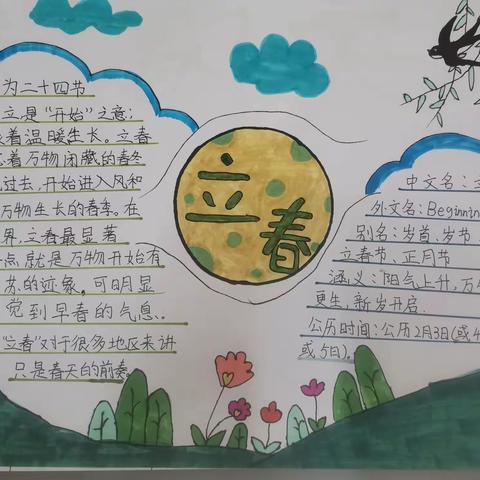 为二十四节
立是“开始”之意;
着温暖生长。立春
着万物闭藏的春冬
过去,开始进入风和
万物生长的春季。在
界,立春最显著
点就是万物开始有
苏的迹象,可明显
觉到早春的气息。
“立春”对于很多地区来讲
只是春天的前奏
立春
中文名:立
外文名:Beginnin
别名:岁首、岁节
立春节、正月节
涵义:阳气上升,万
更生,新岁开启.
公历时间:公历2月3日(或4
或5日)。